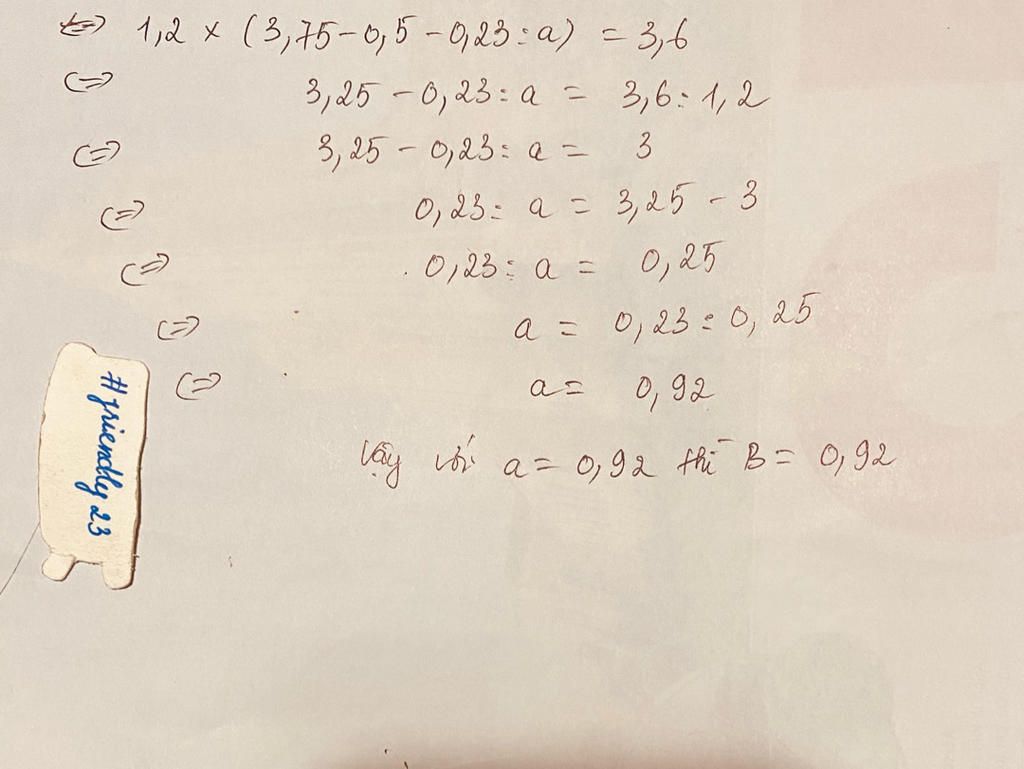 ⇔ 1,2 × (3,75 - 0,5 - 0,23 : a) = 3,6
⇔ 3,25 - 0,23 : a = 3,6 : 1,2
⇔ 3,25 - 0,23 : a = 3
⇔ 0,23 : a = 3,25 - 3
⇔ 0,23 : a = 0,25
⇔ a = 0,23 : 0,25
⇔ a = 0,92
Vậy với a = 0,92 thì B = 0,92
#friendly23